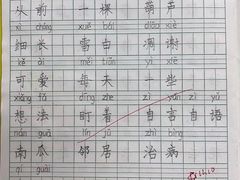 从前 一棵 葫芦
xì cháng xuě bái diāo xiè
细长 雪白 凋谢
kě ài měi tiān yì xiē
可爱 每天 一些
xiǎng fǎ dīng zhe zì yán zì yǔ
想法 盯着 自言自语
nán guā lín jū zhì bìng
南瓜 邻居 治病
qí guài
11.10